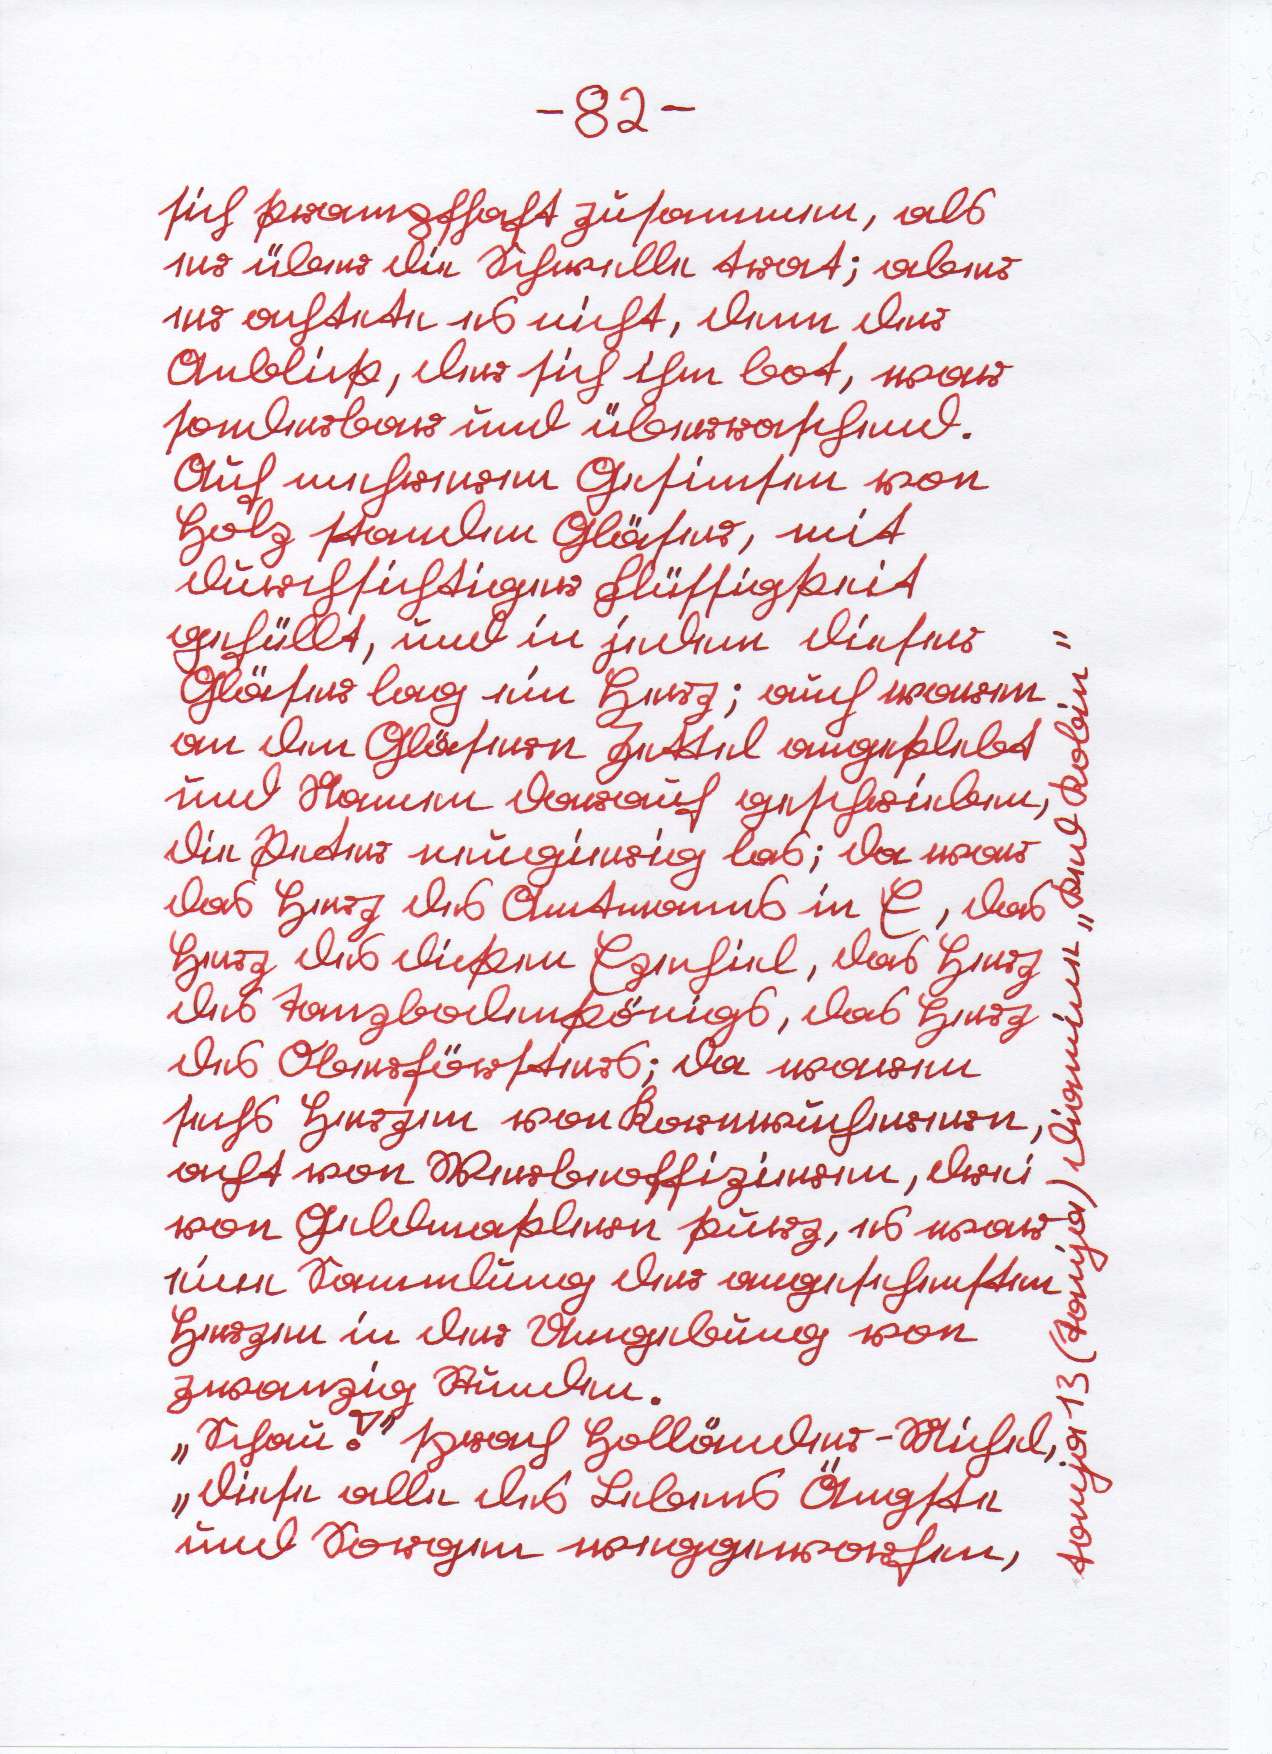 -82-
sich krampfhaft zusammen, als
er über die Schwelle trat; aber
er achtete es nicht, denn der
Anblick, der sich ihm bot, war
sonderbar und überraschend.
Auf mehreren Gesimsen von
Holz standen Gläser, mit
durchsichtiger Flüssigkeit
gefüllt, und in jedem dieser
Gläser lag ein Herz; auch waren
an den Gläsern Zettel angeklebt
und Namen darauf geschrieben,
die Peter neugierig las; da war
das Herz des Amtmanns in E, das
Herz des dicken Ezechiel, das Herz
des Tanzbodenkönigs, das Herz
des Oberförsters; da waren
sechs Herzen von Kornwucherern,
acht von Werbeoffizieren, drei
von Geldmaklern kurz, es war
eine Sammlung der angesehensten
Herzen in der Umgebung von
zwanzig Stunden.
„Schau!“ sprach Holländer-Michel,
„diese alle des Lebens Ängste
und Sorgen weggeworfen,
tanja 13 (Tanja) Diamine „Red Robin“